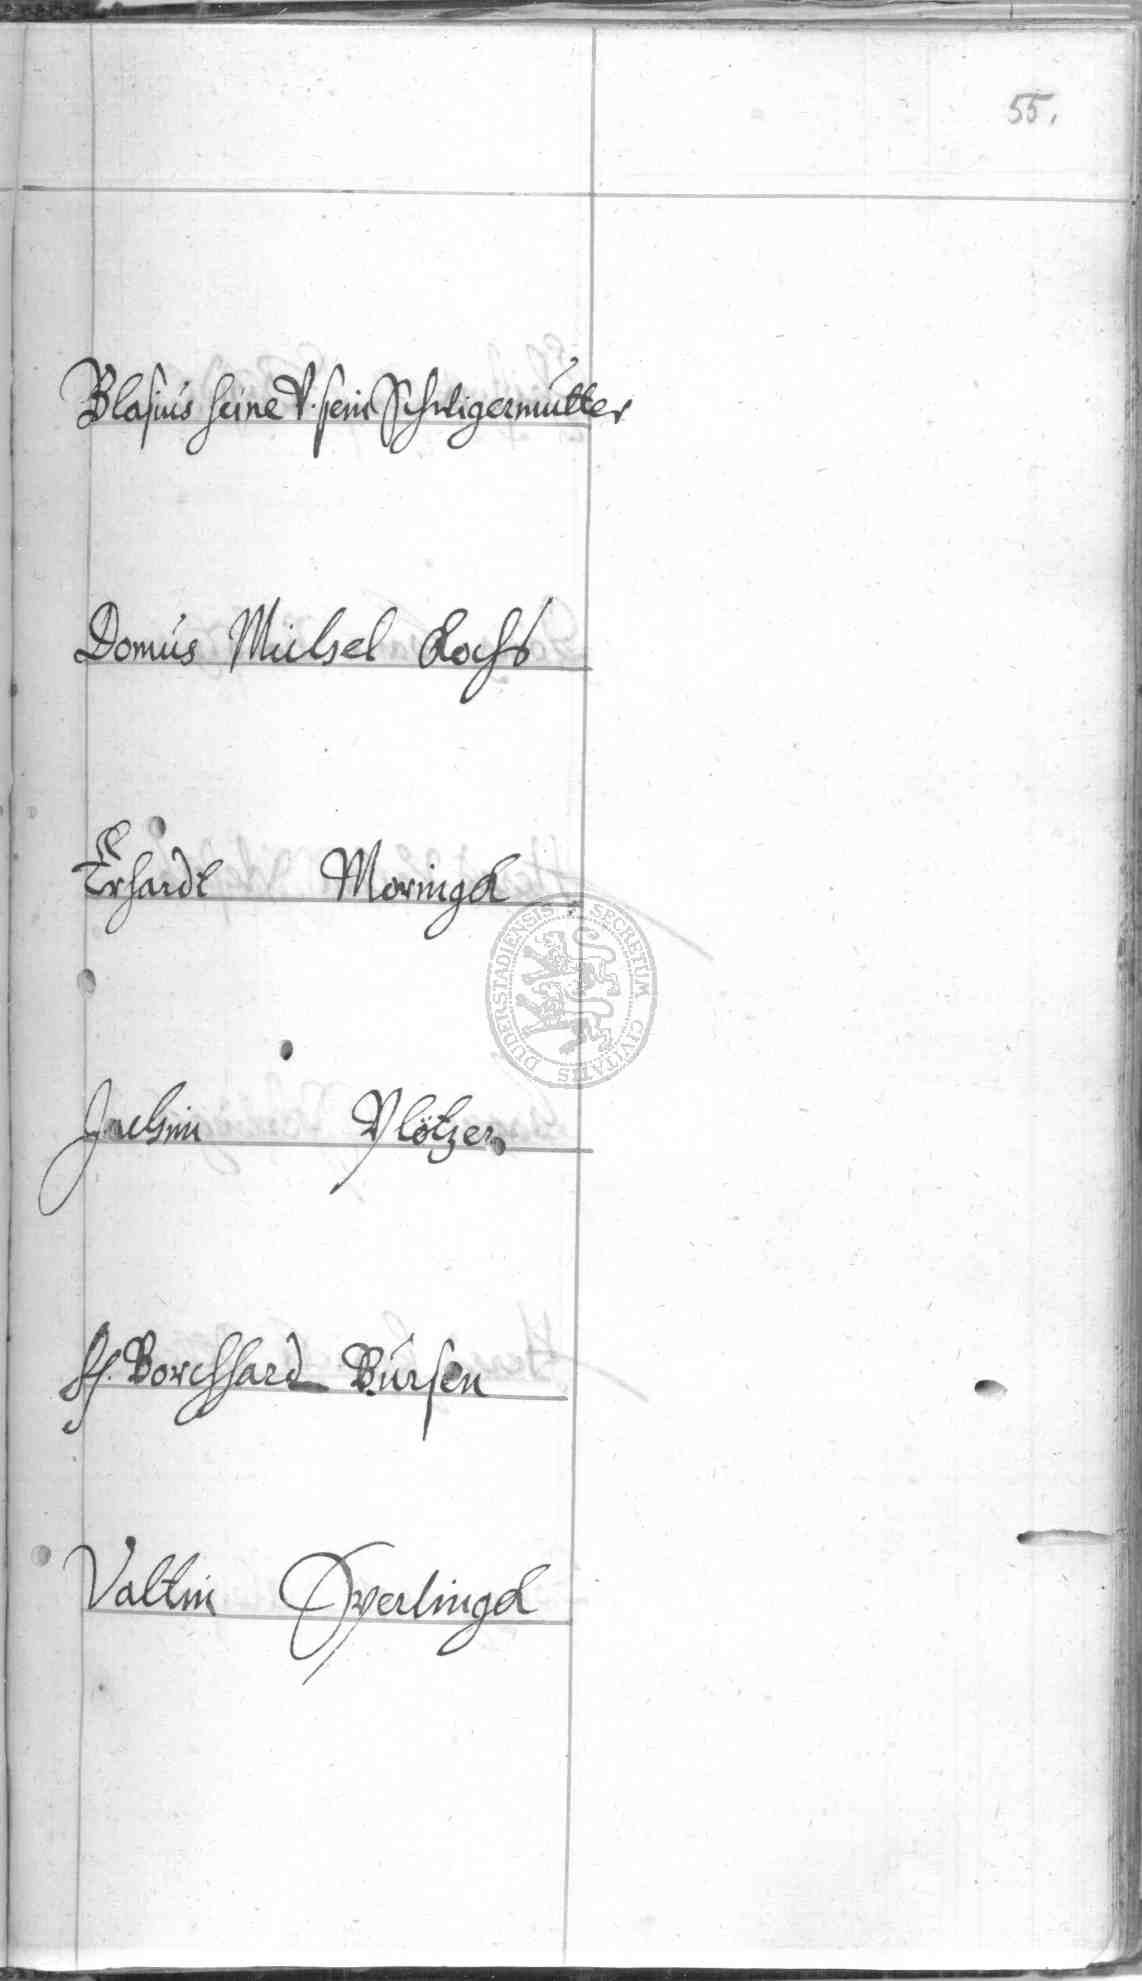 55.
Blasius Heine V. sein Schwigermutter
Domus Michel Kochs
Erhardt Moringk
Jochim Plötzer
H. Borchhard Bursen
Valtin Overlingk
SECRETUM CIVITATIS DUDERSTADIENSIS